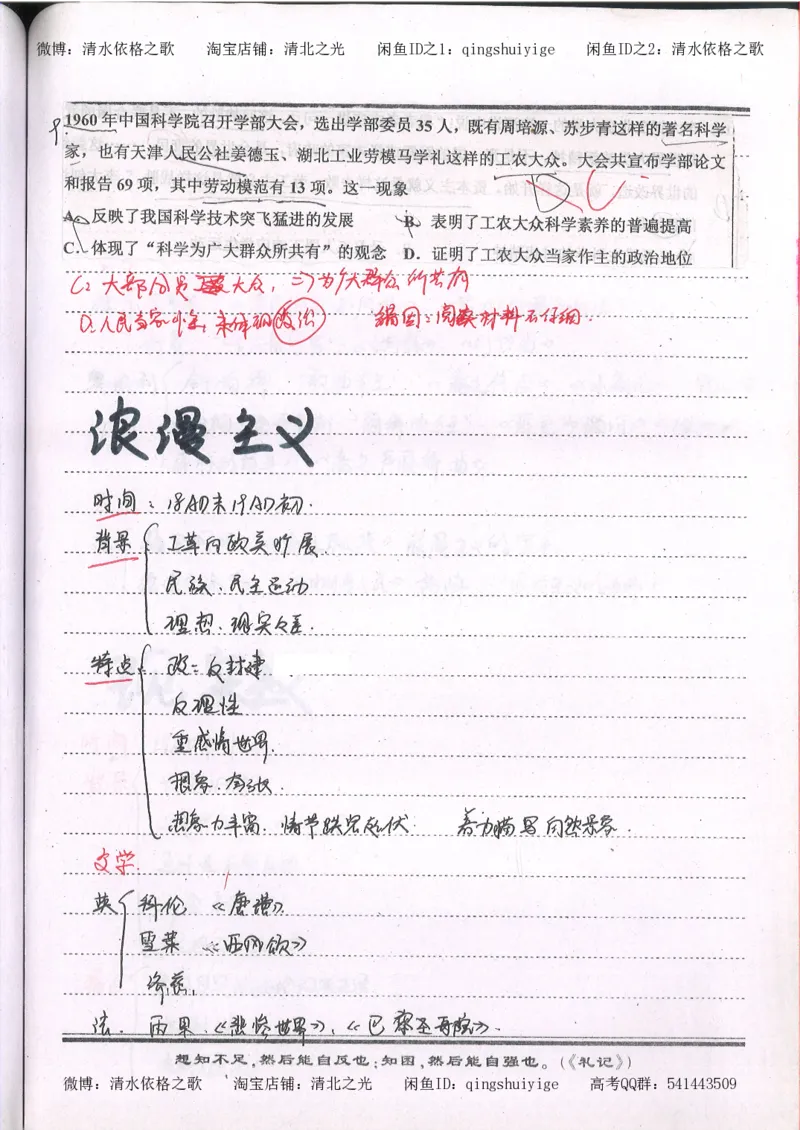 微博：清水依格之歌 淘宝店铺：清北之光 闲鱼ID之1：qingshuiyige 闲鱼ID之2：清水依格之歌
1960年中国科学院召开学部大会，选出学部委员35人，既有周培源、苏步青这样的著名科学
家，也有天津人民公社姜德玉、湖北工业劳模马学礼这样的工农大众。大会共宣布学部论文
和报告69项，其中劳动模范有13项。这一现象
A．反映了我国科学技术突飞猛进的发展 B．表明了工农大众科学素养的普遍提高
C．体现了“科学为广大群众所共有”的观念 D．证明了工农大众当家作主的政治地位
C：大部分员工农大众，⇒为广大群众所共有
D.人民当家作主，未体现政治 错因：阅读材料不仔细.
浪漫主义
时间：18AD末19AD初.
背景 工革向欧美扩展.
民族、民主运动
理想、现实反差.
特点 政：反封建.
反理性
重感情世界.
想象、夸张.
想象力丰富. 情节跌宕起伏. 着力描写自然景象.
文学.
英 拜伦 《唐璜》
雪莱 《西风颂》
济慈.
法. 雨果《悲惨世界》，《巴黎圣母院》.
想知不足，然后能自反也；知困，然后能自强也。（《礼记》）
微博：清水依格之歌 淘宝店铺：清北之光 闲鱼ID：qingshuiyige 高考QQ群：541443509